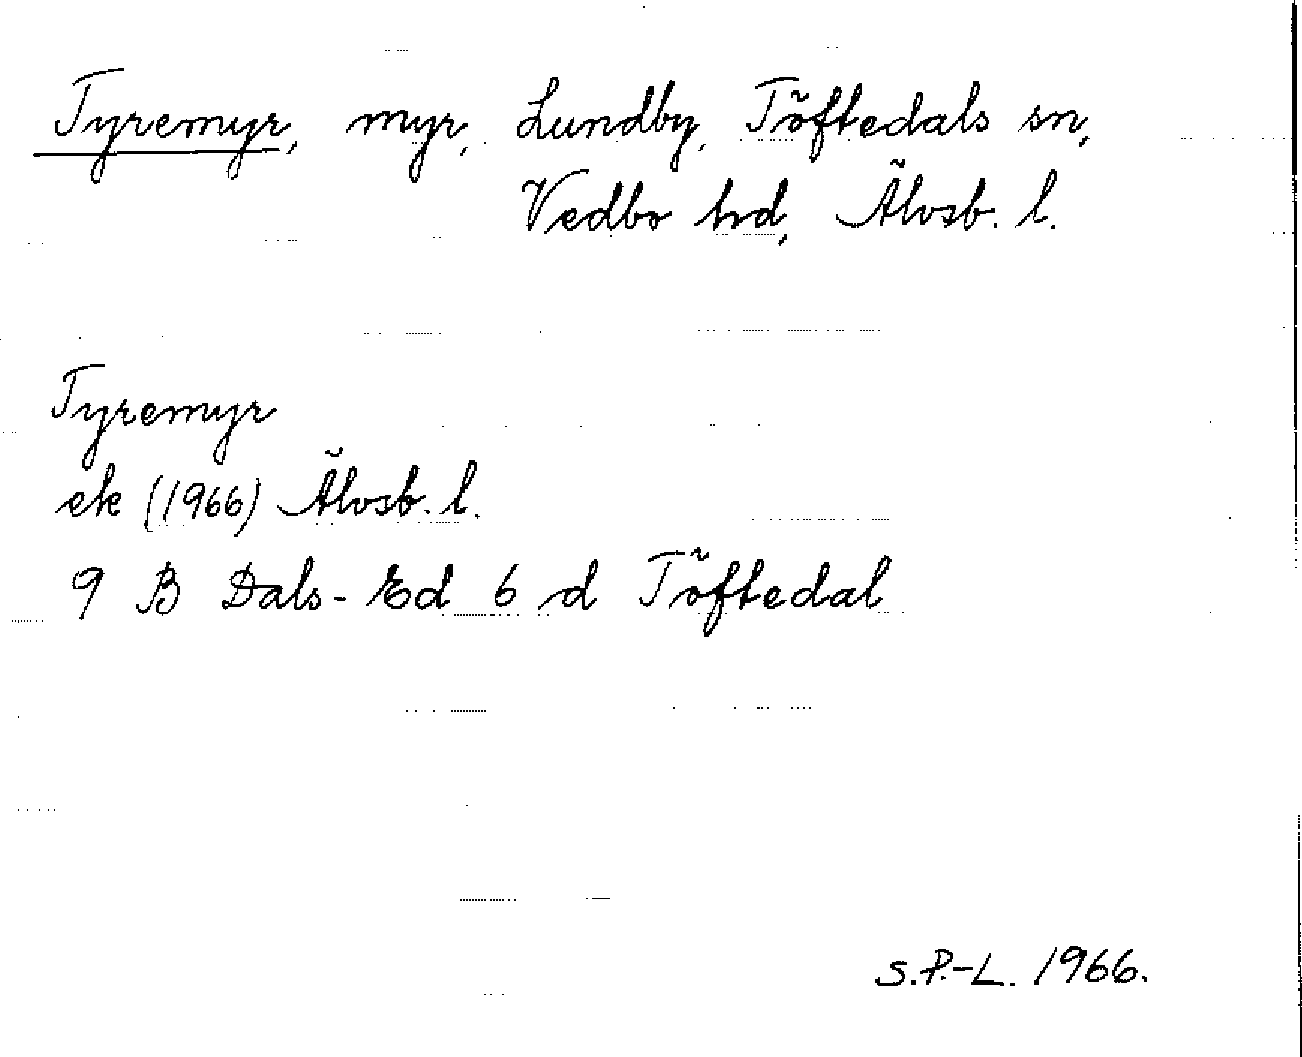 Tyremyr, myr, Lundby, Töftedals sn,
Vedbo hd, Älvsb. l.
Tyremyr
ek (1966) Älvsb. l.
9 B Dals-Ed 6 d Töftedal
S.P.-L. 1966.